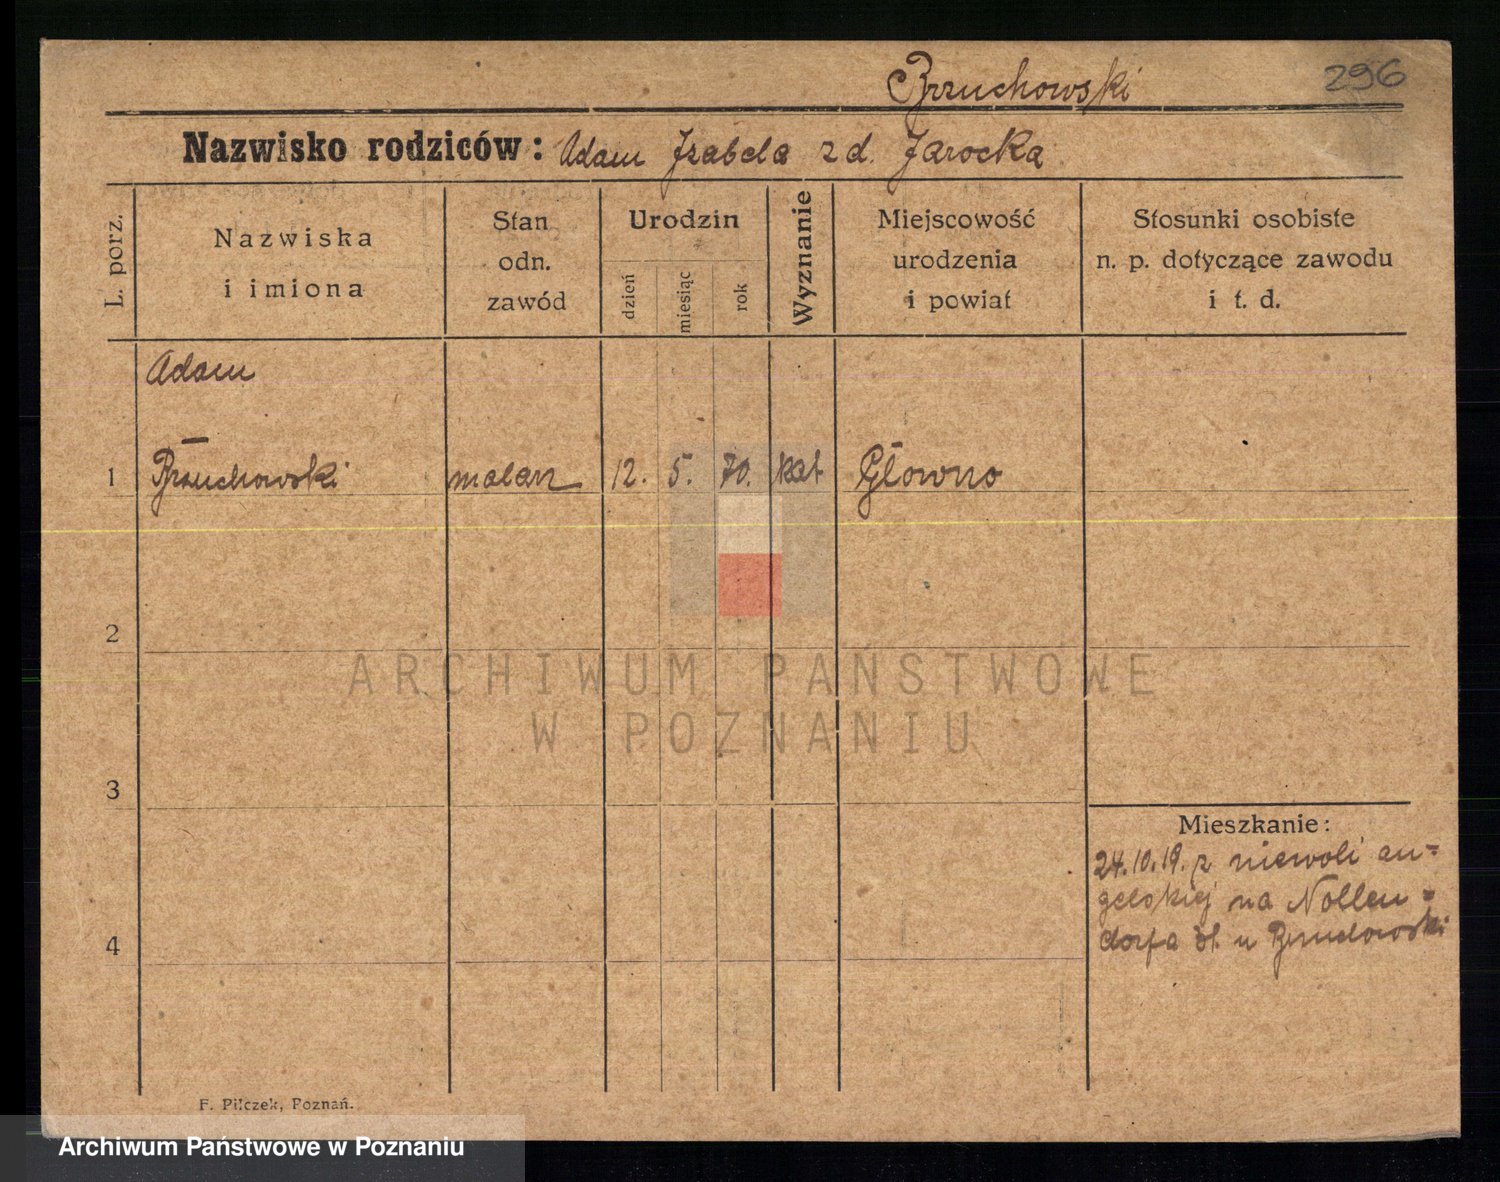 Brzuchowski 296
Nazwisko rodziców: Adam Izabela z d. Jarocka
L. porz.
Nazwiska
i imiona
Stan
odn.
zawód
Urodzin
dzień
miesiąc
rok
Wyznanie
Miejscowość
urodzenia
i powiat
Stosunki osobiste
n. p. dotyczące zawodu
i t. d.
Adam
1 Brzuchowski malarz 12. 5. 70. kat Główno
2
ARCHIWUM PAŃSTWOWE
W POZNANIU
3
Mieszkanie:
24.10.19. z niewoli an=
gelskiej na Nollen=
4
dorfa 31. u Brzuchowski
F. Pilczek, Poznań.
Archiwum Państwowe w Poznaniu